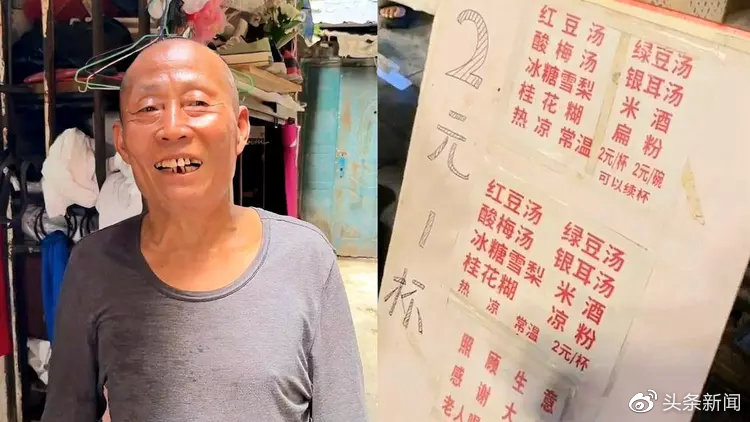 2元1杯
红豆汤
酸梅汤
冰糖雪梨
桂花糊
热 凉 常温
绿豆汤
银耳汤
米酒
扁粉
2元/杯 2元/碗
可以续杯
红豆汤
酸梅汤
冰糖雪梨
桂花糊
热 凉 常温
绿豆汤
银耳汤
米酒
凉粉
2元/杯
照顾生意
感谢大
老人
头条新闻